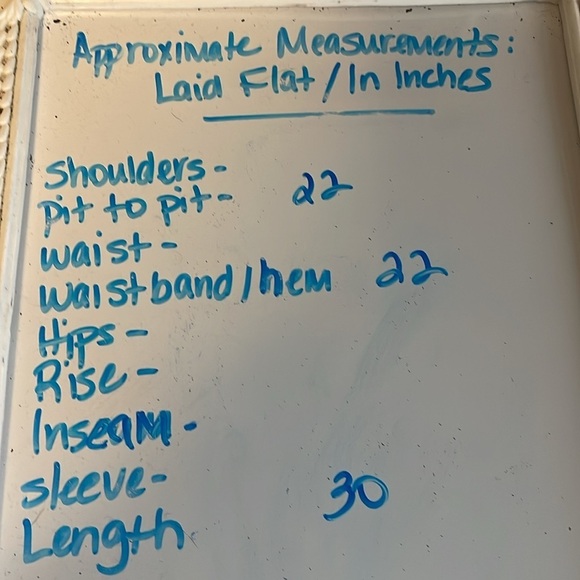 Approximate Measurements:
Laid Flat / In Inches
Shoulders-
pit to pit- 22
waist-
waistband/hem 22
Hips-
Rise-
Inseam-
sleeve- 30
Length